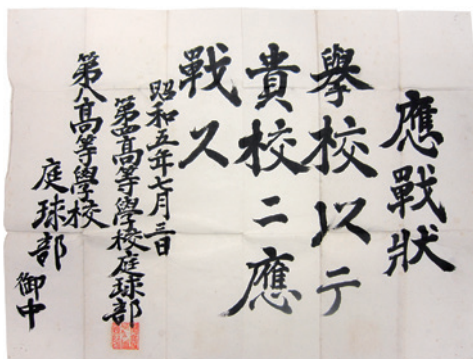 應戰狀
擧校以テ
貴校ニ應
戰ス
昭和五年七月三日
第四高等學校庭球部
第八高等學校
庭球部御中